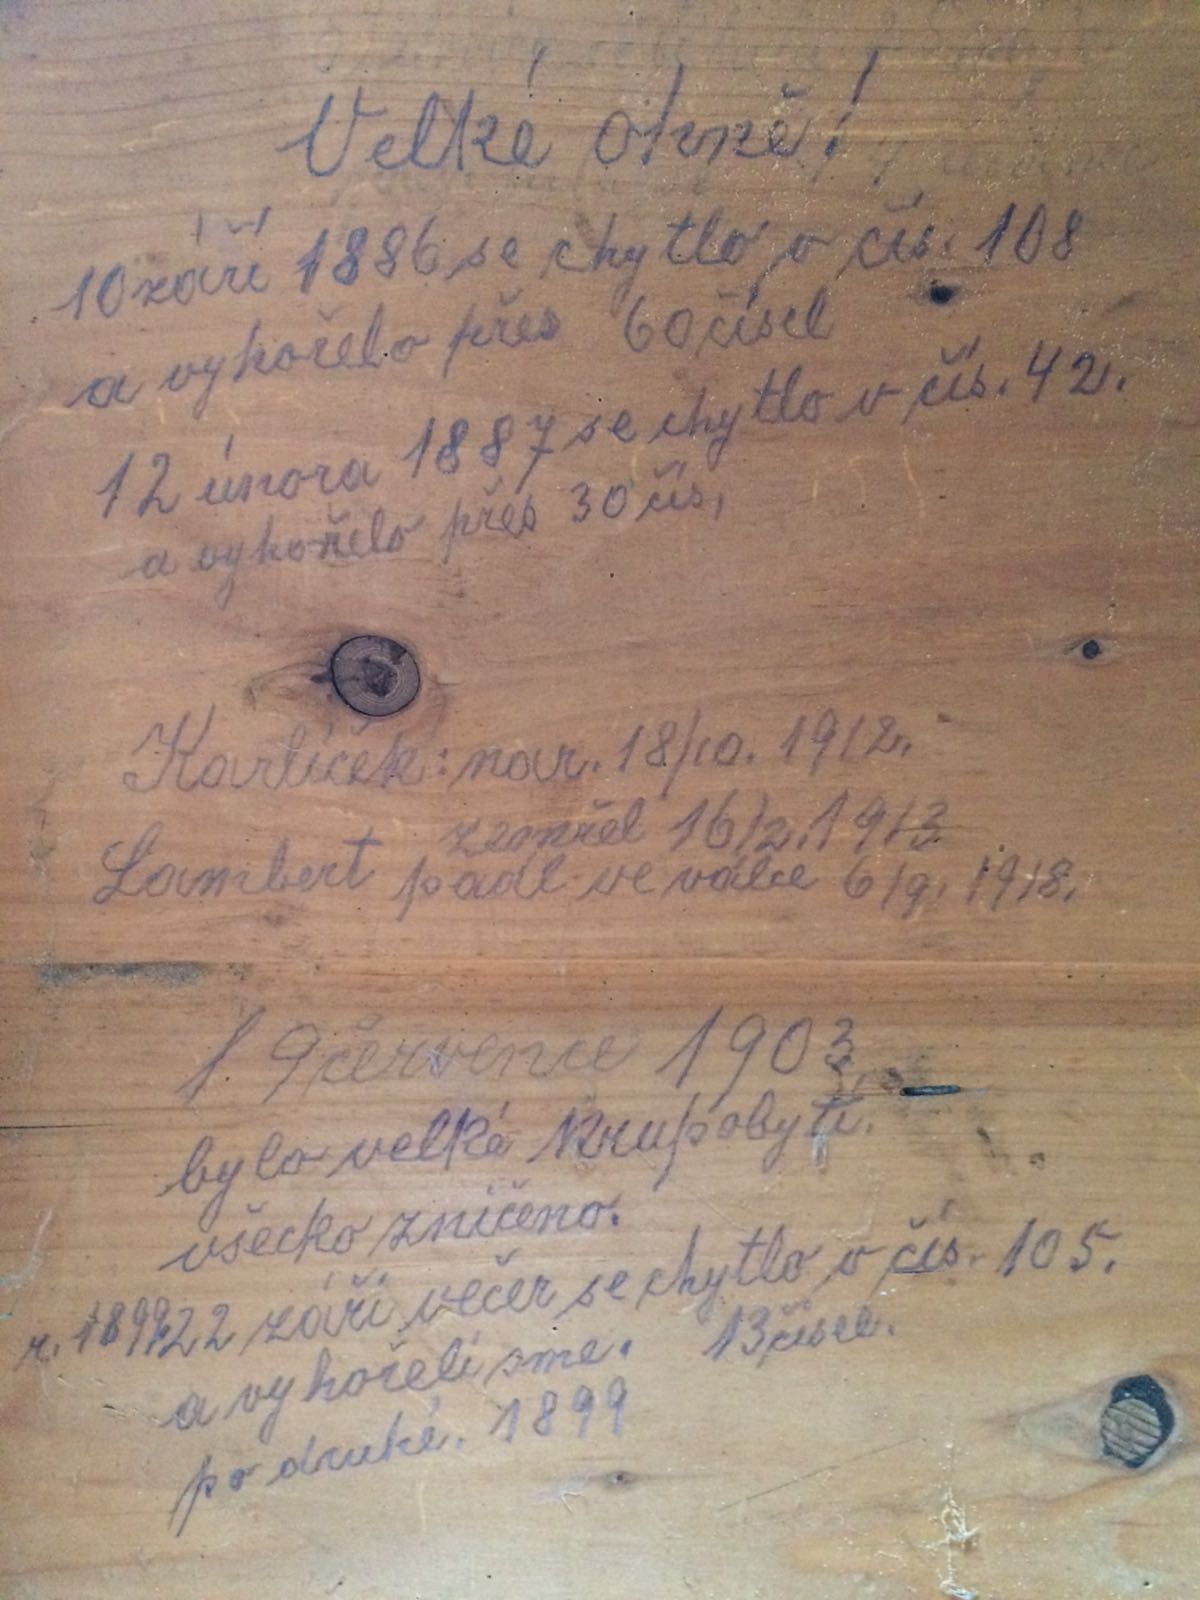 Velké ohně!
10 září 1886 se chytlo v čís. 108
a vyhořelo přes 60 čísel
12 února 1887 se chytlo v čís. 42.
a vyhořelo přes 30 čís,
Karlíček: nar. 18/10. 1912.
zemřel 16/2. 1913
Lambert padl ve válce 6/9. 1918.
19 července 1903
bylo velké krupobytí.
všecko zničeno.
r. 1899 22 září večer se chytlo v čís. 105.
a vyhořeli sme. 13 čísel.
po druhé. 1899